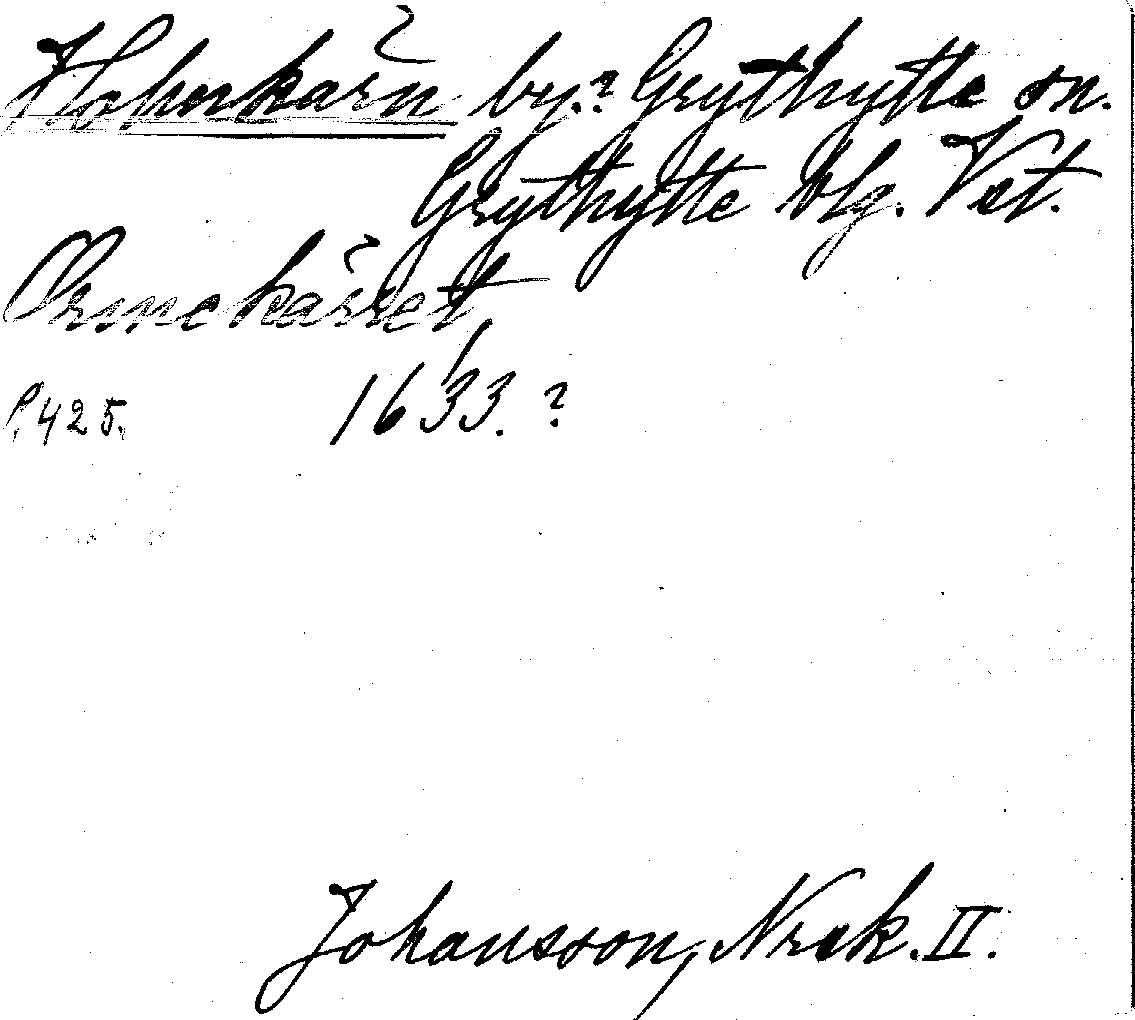 by.? Grythytte sn.
Grythytte blg. Vst.
Ormekärret
1633.?
425.
Johansson, Nrek. II.